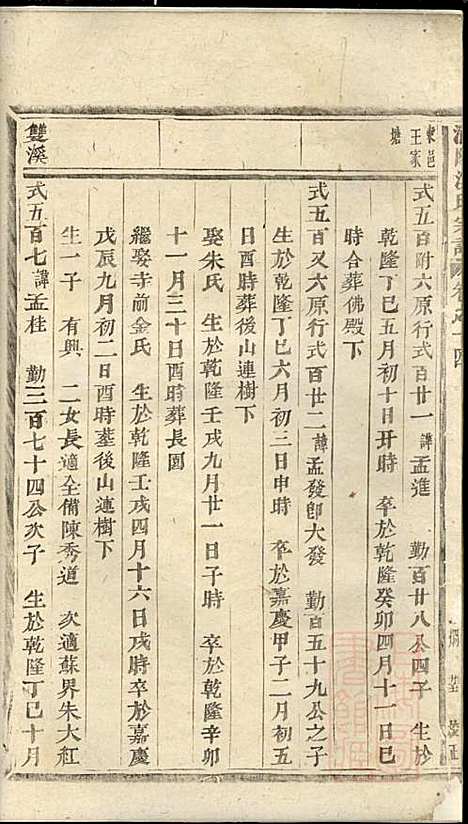 東邑
王家
塘
式五百附六原行式百廿一 諱孟進 勤百廿八公四子 生於
乾隆丁巳五月初十日玕時 卒於乾隆癸卯四月十一日巳
時合葬佛殿下
式五百又六原行式百廿二 諱孟發卽大發 勤百五十九公之子
生於乾隆丁巳六月初三日申時 卒於嘉慶甲子二月初五
日酉時葬後山連樹下
娶朱氏 生於乾隆壬戌九月廿一日子時 卒於乾隆辛卯
十一月三十日酉時葬長園
繼娶寺前金氏 生於乾隆壬戌四月十六日戌時卒於嘉慶
戊辰九月初二日酉時葬後山連樹下
生一子 有興 二女長適仝備陳秀道 次適蘇界朱大紅
雙溪
式五百七諱孟桂 勤三百七十四公次子 生於乾隆丁巳十月